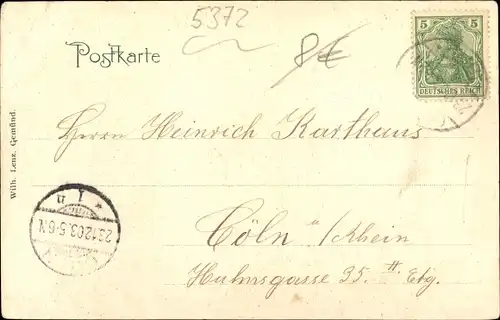 5372
8€
Postkarte
5 5
DEUTSCHES REICH
Wilh. Lenz, Gemünd.
Herrn Heinrich Karthaus
Cöln a/Rhein
Huhnsgasse 35. II Etg.
23.12.03.5-6N.